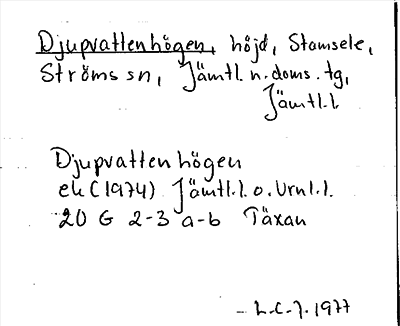 Djupvattenhögen, höjd, Stamsele,
Ströms sn, Jämtl. n. doms. tg,
Jämtl. l.
Djupvattenhögen
ek (1974) Jämtl. l. o. Vrnl. l.
20 G 2-3 a-b Täxan
- L.C.J. 1977